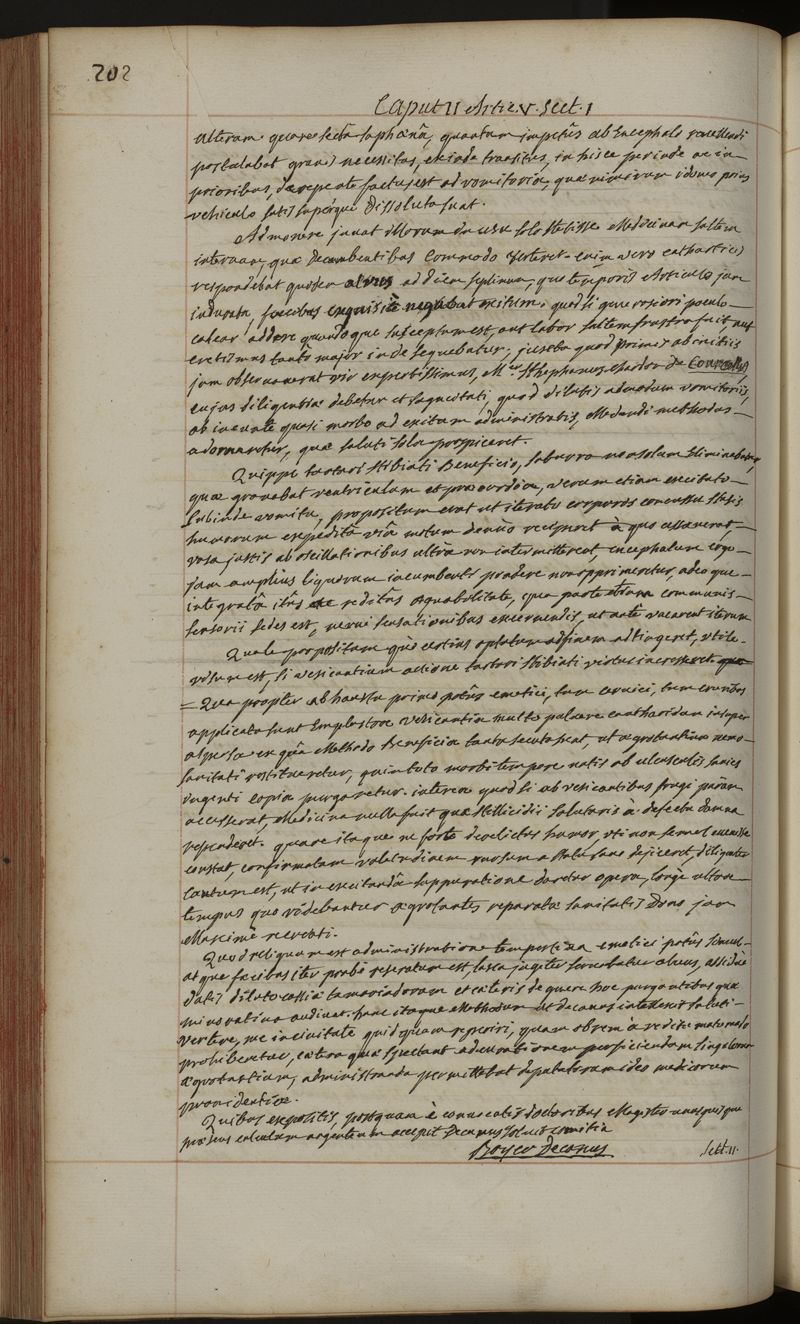 202
Caput II Artic. V. Sect. I
alteram. quare sectâ saphœnâ, quantum impetûs ab Encephalo revellendi
postulabat gravis necessitas, exinde transitus, in hisce perinde ac in
prioribus, derepente factus est ad vomitoria, quæ nimirum idoneo prius
vehiculo satis superque dissoluta sunt.
Admonere juvat illorum in usu solo stetisse Medicinam
internam, quæ decumbentibus commodo verteret. enim vero catharticis
respondebat quidem alvus ad diem septimum, quo temporis articulo jam
indurata, fœcibus exquisitè negabat exitum. quod si generosiori poculo
calcar addere quandoque susceptum est, aut labor saltem frustra fuit, aut
eretismus tantò major inde sequebatur; juxta quod primis ab initiis
jam observaverat vir expertissimus, M.er Sthephanus de Courcelles,
cujus diligentiæ debetur et sagacitati, quod dilutis admodum vomitoriis,
ab ineunte quasi morbo ad exitum administratis, Medendi methodus
adornaretur, quæ saluti sola prospiceret.
Quippe tartari stibiati Beneficio, saburra non solum Eliminabatur,
quæ gravabat ventriculum et præcordia, verum etiam excitato
subinde vomitu, propositum erat ut iterato corporis concussu stasis
humorum expeditâ viâ motum denuò reciperet à quo cessaverat,
vasa justis ab oscillationibus ultra non intermitterent, encephalum ergo
jam amplius liquorum incumbenti pondere non opprimeretur, adeoque
integratâ itûs ac reditûs æquabilitate, qua parte etiam communis
sensorii sedes est, nervi sensationibus excernendis, ut antè vacarent iterum
Quale propositum quò certius optatum ad finem adtingeret, utile
visum est, si vesicantium actione tartari stibiati virtus incresceret.
= Qua propter ab haustu primo potûs emetici, tum cervici, tum cruribus
applicata sunt Emplastra vesicantia multo pulvere cantharidum insuper
aspersa ex quâ Methodo Beneficia tanta secuta sunt, ut ægrotantium nemo
sanitati restitueretur, quin toto morbi tempore natis ab ulcusculis sanies
ingenti copia purgaretur. interea quod si ab vesicantibus frugi parum
accesserat, Medicina nulla fuit quæ stillicidii salutaris à defectu damna
rependeret. quare itaque ne forte derelictus humor, uti non semel evenisse
constat, confirmatam valetudinem rursum a statu sano dejiceret, diligenter
cautum est, ut in excitandâ suppuratione daretur opera, longè ultra
tempus quo videbantur ægrotantes reparatæ sanitatis Dono jam
Maximè recreati.
Quod reliquum est administratione temporanea emetici potûs simul
atque fæcibus iter probè reseratum est, laxa jugiter servabatur alvus, assiduè
datis diluto cassiæ tamarindorum et cæteris de genere hoc purgantibus quæ
minorativa audiunt. hanc itaque Methodum ut Decanus intellexit saluti
vertere, nec in civitate quidquam reperiri, quamobrem à reditu
prohiberetur, cetera quæ spectant ad curationem perficiendam singulorum
ægrotantium, administranda permittebat deputatorum ides medicorum
providentiæ.
Quibus expositis, postquam è convocatis doctoribus Magister unusquisque
præsens calculum argenteum accepit Decanus solvit comitia
Boyer Decanus
Sect. II.